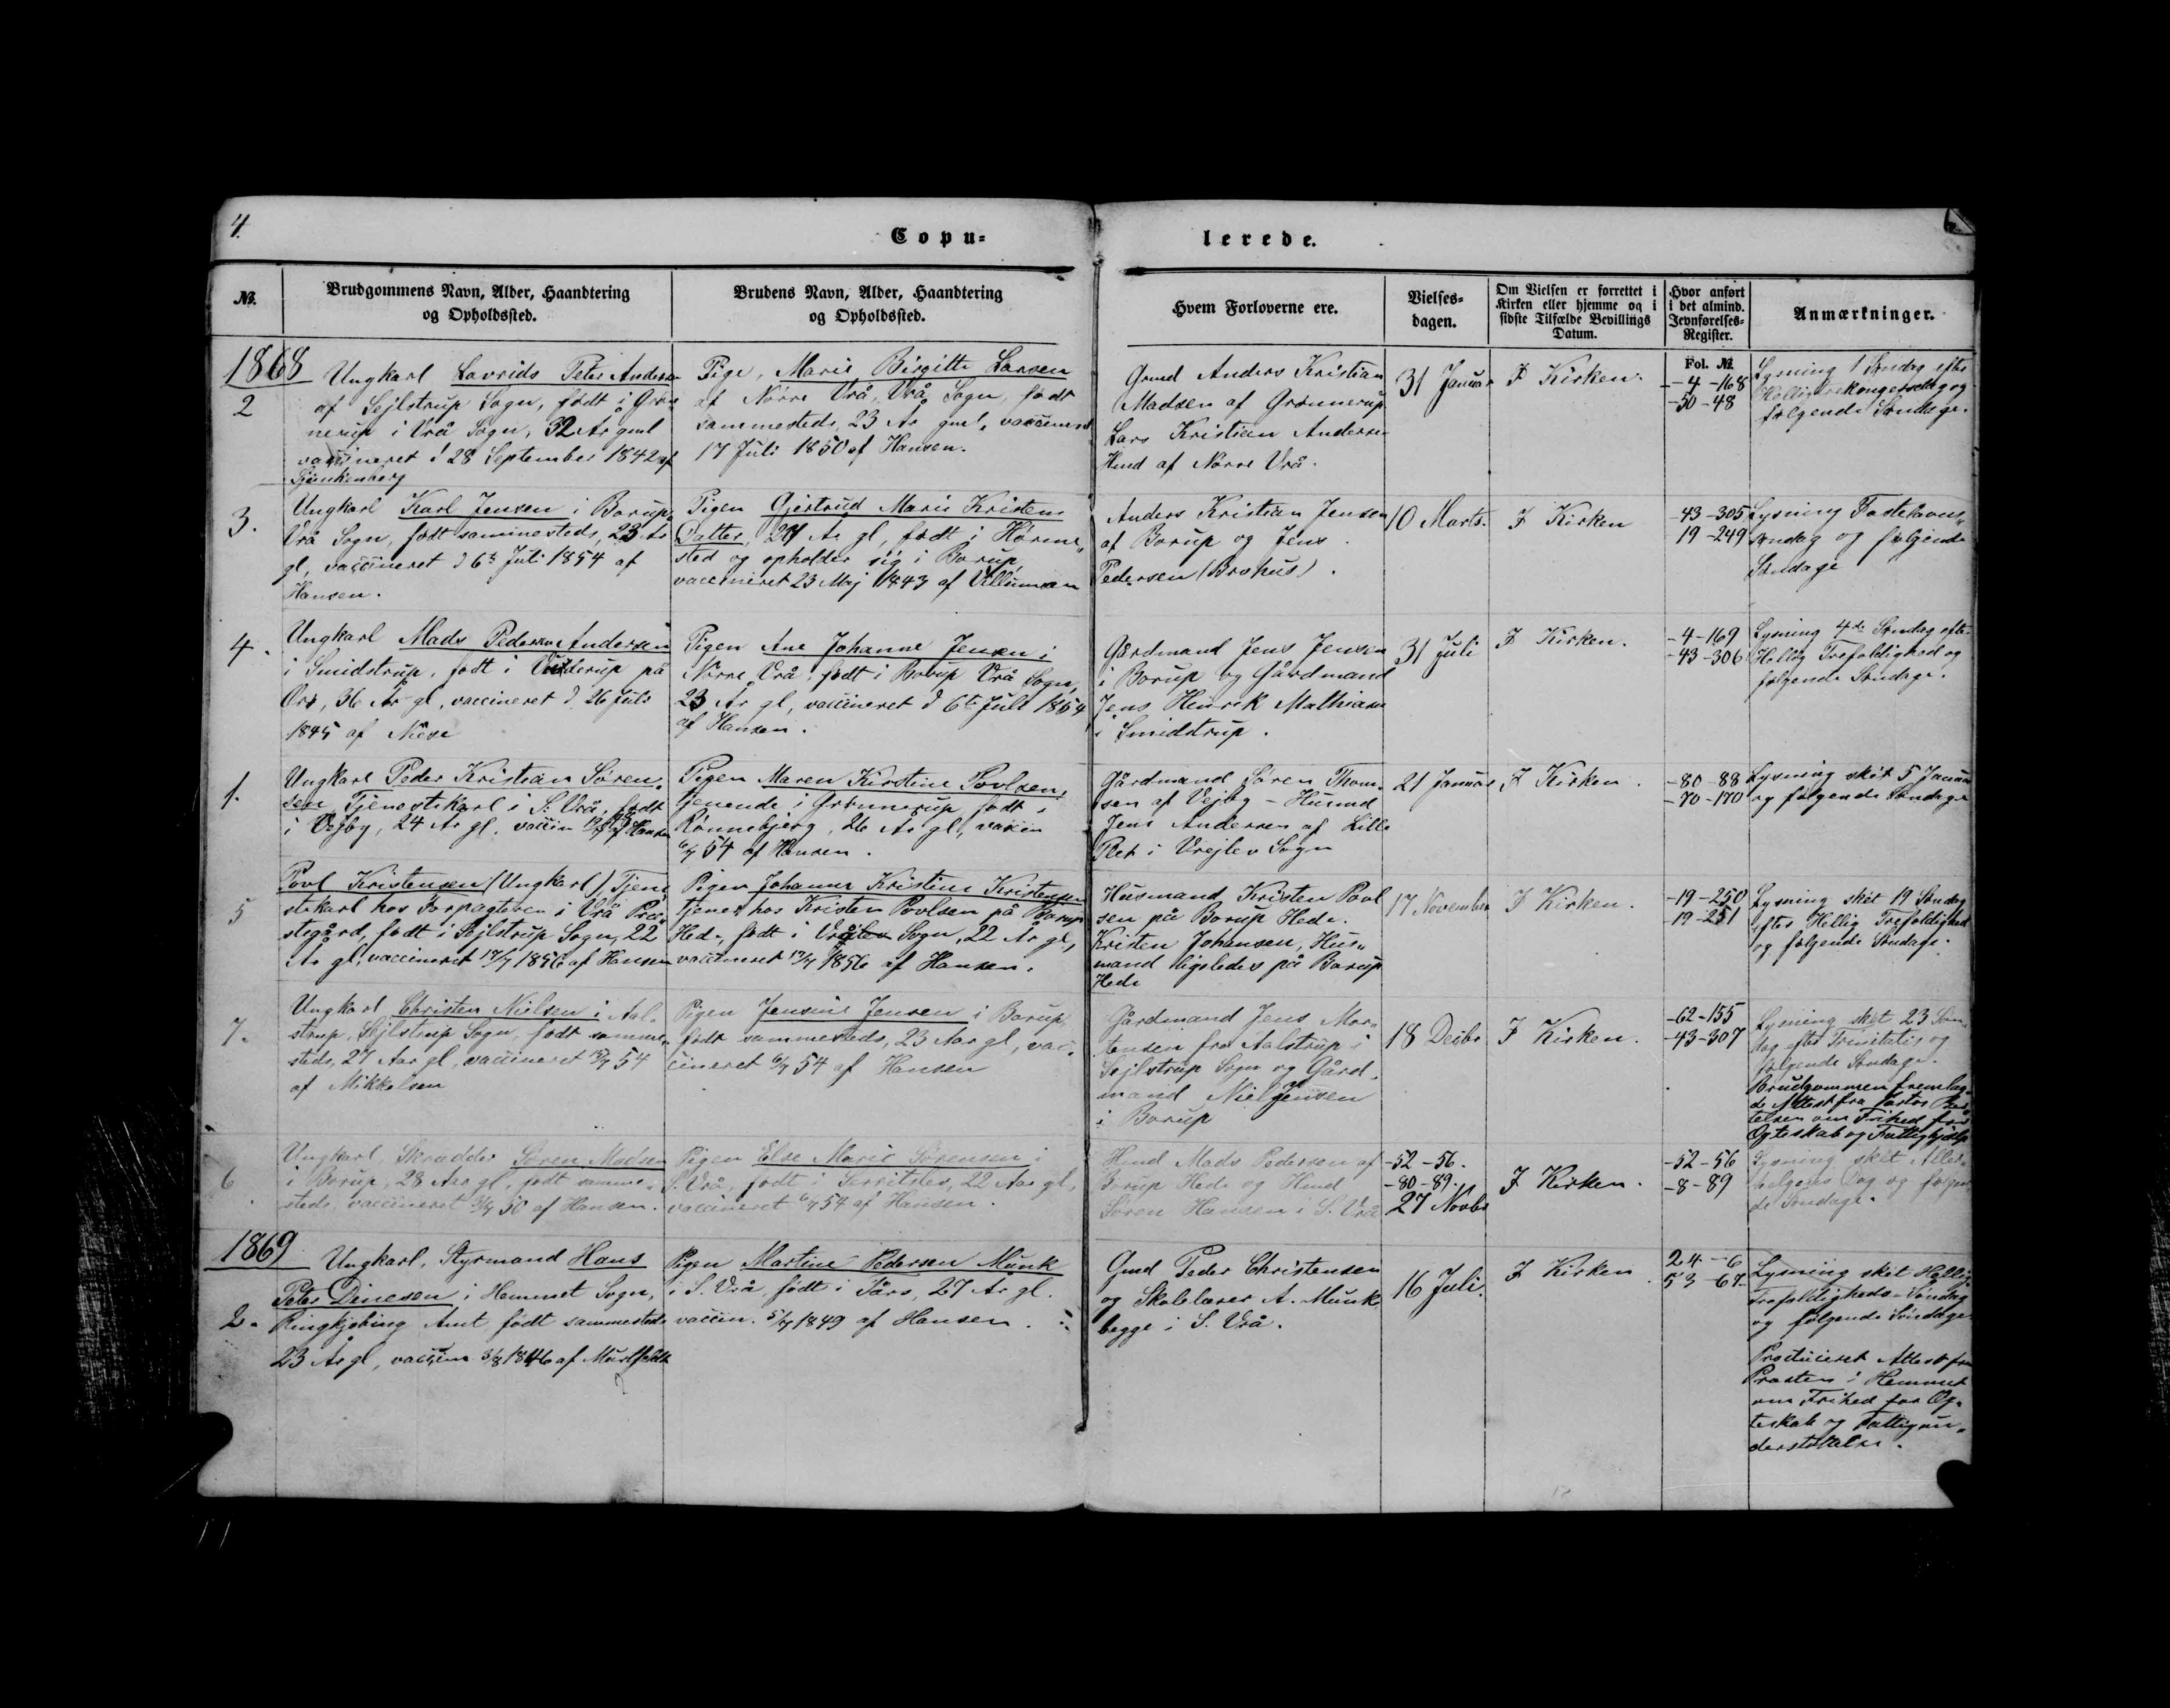 4.
Copu=
lerede.
№.
Brudgommens Navn, Alder, Haandtering
og Opholdssted.
Brudens Navn, Alder, Haandtering
og Opholdssted.
Hvem Forloverne ere.
Vielses=
dagen.
Om Vielsen er forrettet i
Kirken eller hjemme og i
sidste Tilfælde Bevillings
Datum.
Hvor anført
i det almind.
Jevnførelses=
Register.
Fol. №.
Anmærkninger.
1868
2
Ungkarl Lavrids Peter Andersen
af Sejlstrup Sogn, født i Grøn
nerup i Vrå Sogn, 32 År gml
vaccineret d 28 September 1842 af
Pige, Marie Birgitte Larsen
af Nørre Vrå, Vrå Sogn, født
sammesteds, 23 År gml, vaccineret
17 Juli 1850 af Hansen.
Grmd Anders Kristian
Madsen af Grønnerup
Lars Kristian Andersen
Hmd af Nørre Vrå.
31 Januar
I Kirken.
-4-168
-50-48
Lysning 1 Søndag efter
Hellig trekongersdag og
følgende Søndage.
3.
Ungkarl Karl Jensen i Borup,
Vrå Sogn, født sammesteds, 23 År
gl, vaccineret d 6te Juli 1854 af
Hansen.
Pigen Gjertrud Marie Kristens
Datter, 24 År gl, født i Hørme„
sted og opholder sig i Borup,
vaccineret 23 Maj 1843 af Villumsen
Anders Kristian Jensen
af Borup og Jens
Pedersen (Brohus).
10 Marts.
I Kirken
43-305
19-249
Lysning Fastelavns„
søndag og følgende
Søndage
4.
Ungkarl Mads Pedersen Andersen
i Smidstrup, født i Vidderup på
36 År gl, vaccineret d. 26 Juli
1845 af
Pigen Ane Johanne Jensen i
Nørre Vrå, født i Borup Vrå Sogn,
23 År gl, vaccineret d 6te Juli 1854
af Hansen.
Gårdmand Jens Jensen
i Borup og Gårdmand
Jens Henrik Mathiasen
i Smidstrup.
31 Juli
I Kirken.
-4-169
-43-306
Lysning 4de Søndag efter
Hellig Trefoldighed og
følgende Søndage.
1.
Ungkarl Peder Kristian Søren„
sen Tjenestekarl i S. Vrå, født
i Vejby, 24 År gl. vaccin af Hansen
Pigen Maren Kirstine Povlsen,
tjenende i Grønnerup, født i
Rønnebjerg, 26 År gl, vaccin
6/7 54 af Hansen.
Gårdmand Søren Thom„
sen af Vejby - Husmd
Jens Andersen af Lille
Ret i Vrejlev Sogn
21 Januar
I Kirken.
-80-88
-70-170
Lysning skét 5 Januar
og følgende Søndage
5
Povl Kristensen (Ungkarl), Tjene
stekarl hos Forpagteren i Vrå Præ„
stegård, født i Sejlstrup Sogn, 22
År gl, vaccineret 17/7 1856 af Hansen
Pigen Johanne Kristine Kristensen
tjener hos Kristen Povlsen på Borup
Hede, født i Vrå Sogn, 22 År gl,
vaccineret 17/7 1856 af Hansen.
Husmand Kristen Povl
sen på Borup Hede.
Kristen Johansen, Hus„
mand ligeledes på Borup
Hede
17 November
I Kirken.
-19-250
19-251
Lysning skét 19 Søndag
efter Hellig Trefoldighed
og følgende Søndage.
7.
Ungkarl Christen Nielsen i Aal„
strup, Sejlstrup Sogn, født samme„
steds, 27 Aar gl, vaccineret 54
af Mikkelsen
Pigen Jensine Jensen i Borup
født sammesteds, 23 Aar gl, vac„
cineret 6/7 54 af Hansen
Gårdmand Jens Mor„
tensen fra Aalstrup i
Sejlstrup Sogn og Gård„
mand Niels Jensen
i Borup
18 Decbr
I Kirken.
-62-155
-43-307
Lysning skét 23 Søn„
dag efter Trinitatis og
følgende Søndage.
Brudgommen fremlag„
de Attest fra Pastor
om Frihed for
Ægteskab og Fattighjælp
6
Ungkarl, Skrædder Søren Madsen
i Borup, 28 Aar gl, født samme„
steds, vaccineret 50 af Hansen.
Pigen Else Marie Sørensen i
S. Vrå, født i Serritslev, 22 Aar gl,
vaccineret 6/7 54 af Hansen.
Hmd Mads Pedersen af
Borup Hede og Hmd
Søren Hansen i S. Vrå
-52-56.
-80-89.
27 Novbr
I Kirken.
-52-56
-8-89
Lysning skét Alle„
helgens Dag og følgen
de Søndage.
1869
2.
Ungkarl, Styrmand Hans
Peter Dinesen i Hemmet Sogn,
Ringkjøbing Amt, født sammesteds
23 År gl, vaccin 3/8 1846 af
Pigen Martine Pedersen Munk
i S. Vrå, født i Tårs, 27 År gl.
vaccin. 5/7 1849 af Hansen.
Gmd Peder Christensen
og Skolelærer A. Munk
begge i S. Vrå.
16 Juli.
I Kirken.
24-6
53-67
Lysning skét Hellig
Trefoldigheds-Søndag
og følgende Søndage
Produceret Attest fra
Præsten i Hemmet
om Frihed for Æg„
teskab og Fattigun„
derstøttelse.